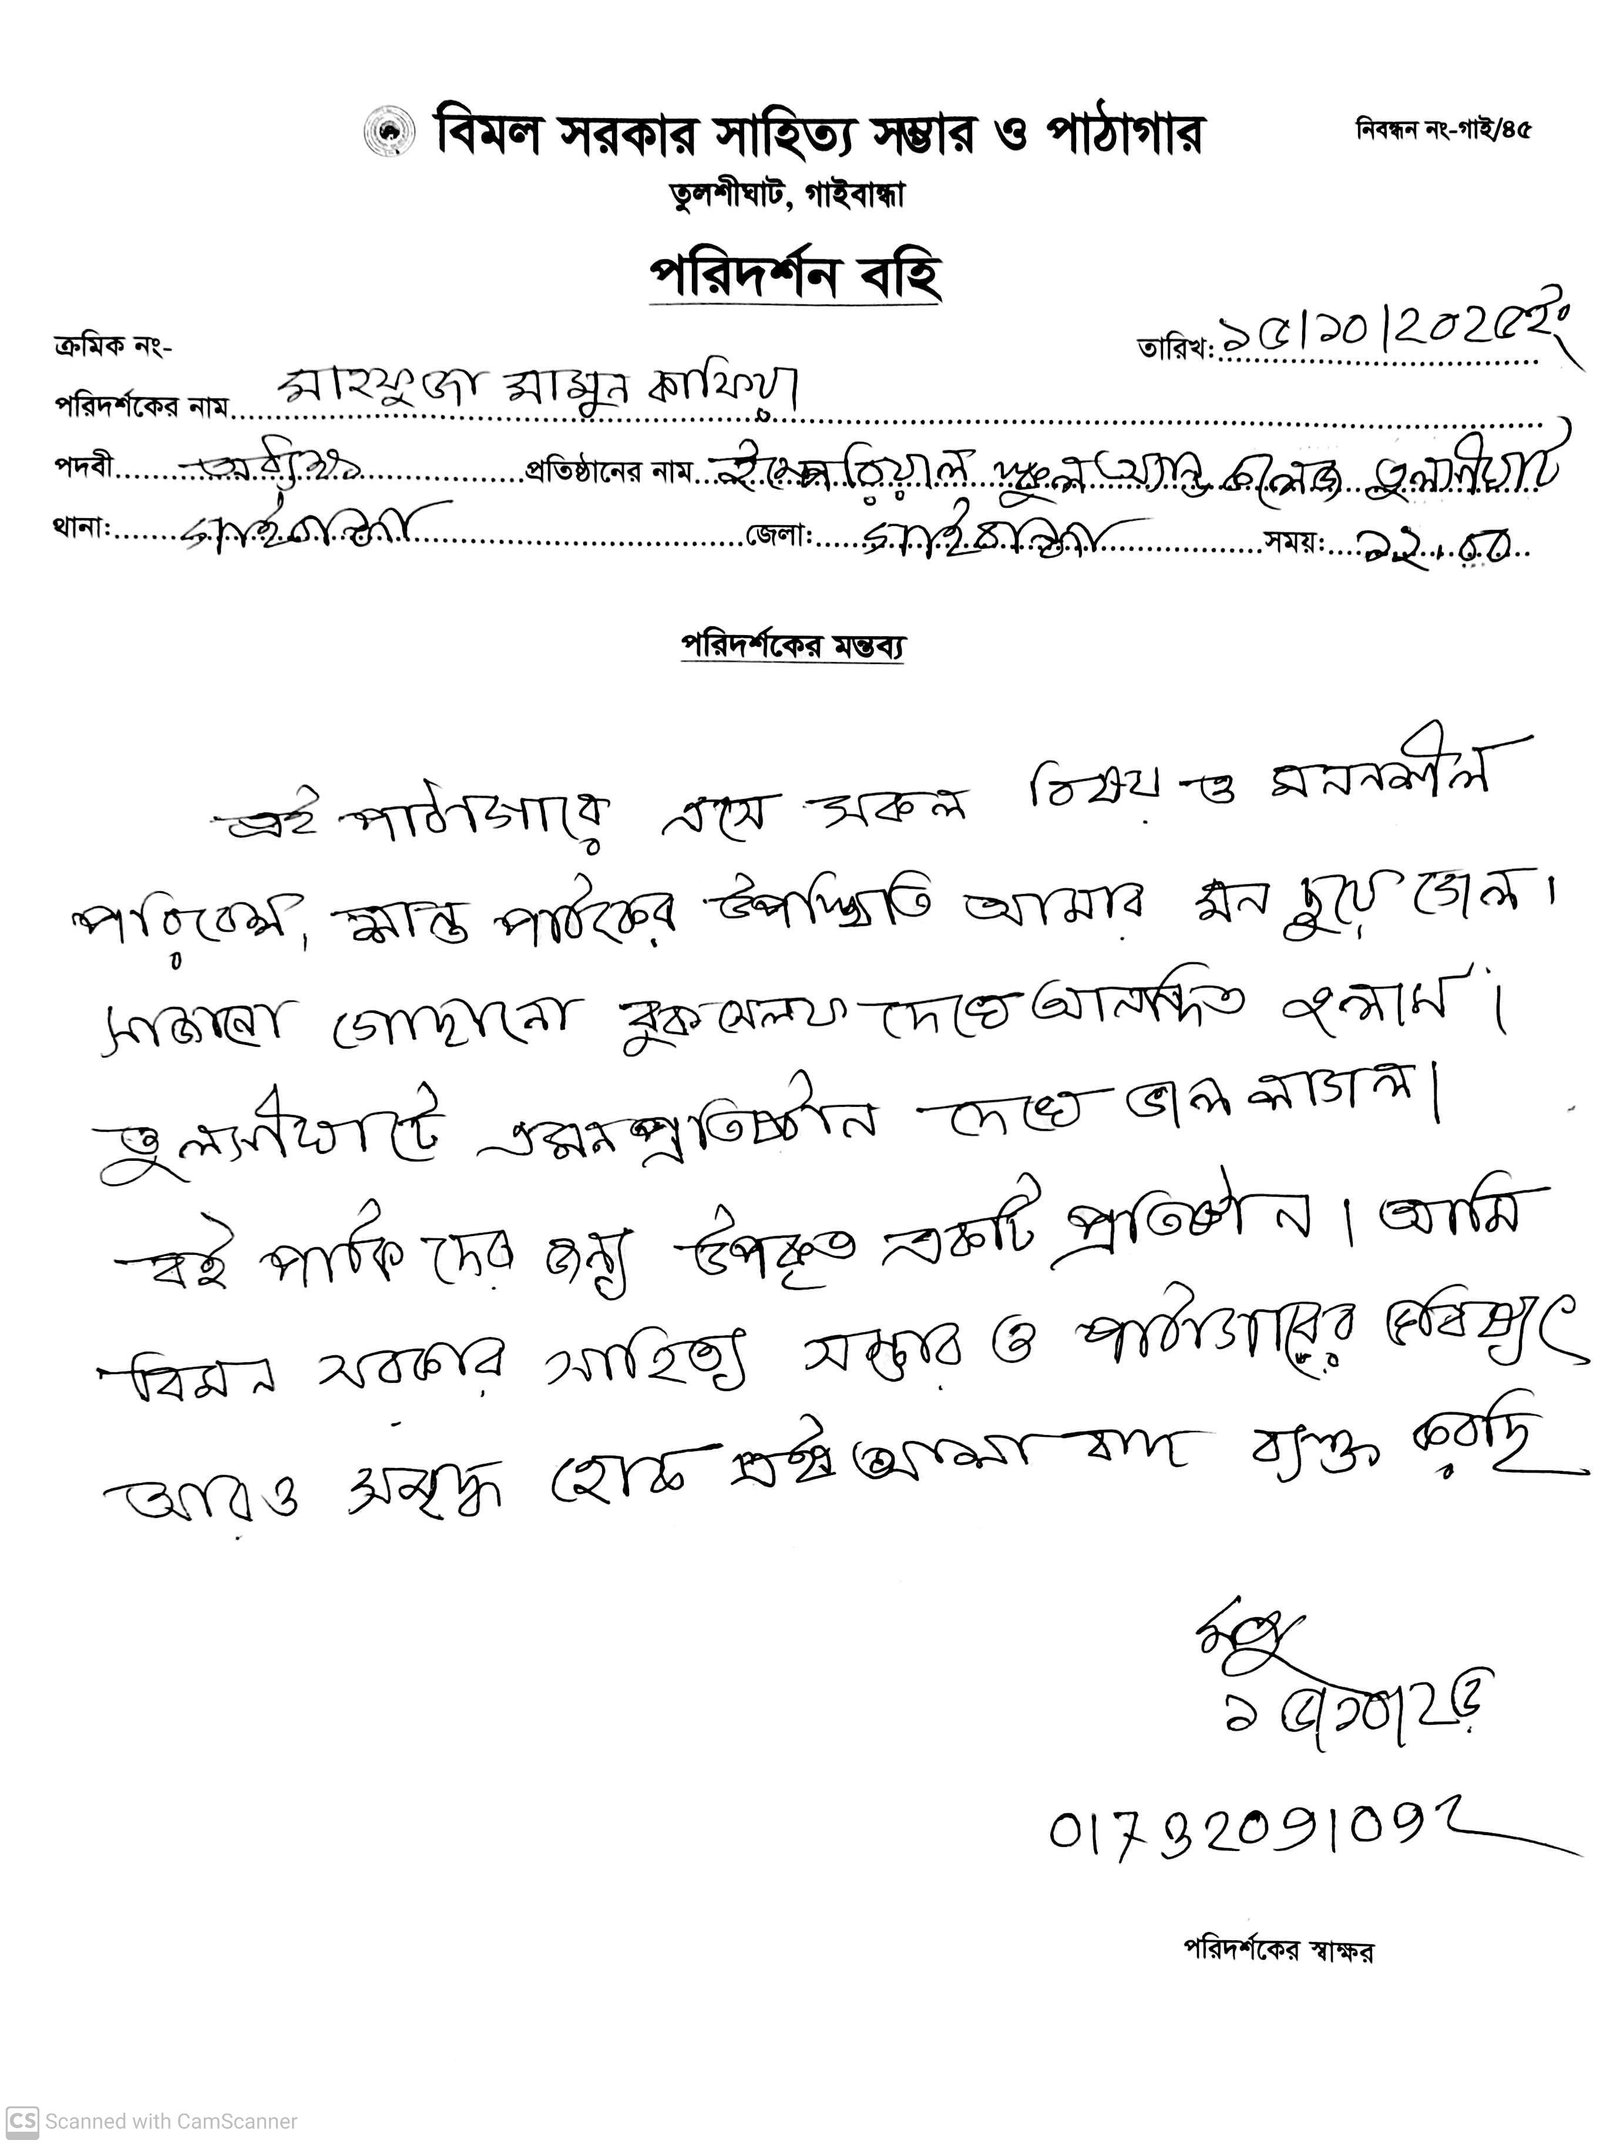 বিমল সরকার সাহিত্য সম্ভার ও পাঠাগার
নিবন্ধন নং-গাই/৪৫
তুলশীঘাট, গাইবান্ধা
পরিদর্শন বহি
ক্রমিক নং-
তারিখ: ১৫/১০/২০২৫ইং
পরিদর্শকের নাম মাহফুজা মামুন কাফিয়া
পদবী অধ্যক্ষ প্রতিষ্ঠানের নাম ইম্পেরিয়াল স্কুল অ্যান্ড কলেজ তুলশীঘাট
থানা: গাইবান্ধা জেলা: গাইবান্ধা সময়: ১২.০০
পরিদর্শকের মন্তব্য
এই পাঠাগারে এসে সকল বিষয় ও মননশীল
পরিবেশ, শান্ত পাঠকের উপস্থিতি আমার মন ছুয়ে গেল।
সাজানো গোছানো বুকসেলফ দেখে আনন্দিত হলাম।
তুলশীঘাটে এমন প্রতিষ্ঠান দেখে ভাল লাগল।
বই পাঠকদের জন্য উপকৃত একটি প্রতিষ্ঠান। আমি
বিমল সরকার সাহিত্য সম্ভার ও পাঠাগারের ভবিষ্যৎ
আরও সমৃদ্ধ হোক এই আশা বাদ ব্যক্ত করছি
১৫/১০/২৫
01732091092
পরিদর্শকের স্বাক্ষর
CS Scanned with CamScanner